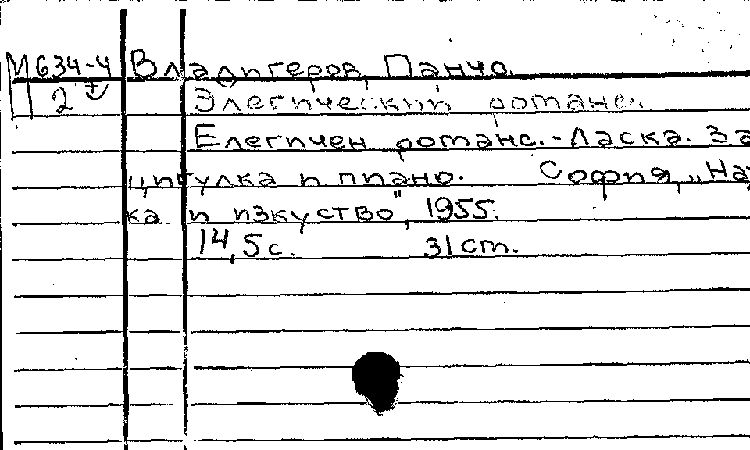 М 634-4 Владигеров, Панчо.
2 Элегический романс.
Елегичен романс.-Ласка. За
цигулка и пиано. София, „На
ка и изкуство", 1955.
14,5 с. 31 cm.